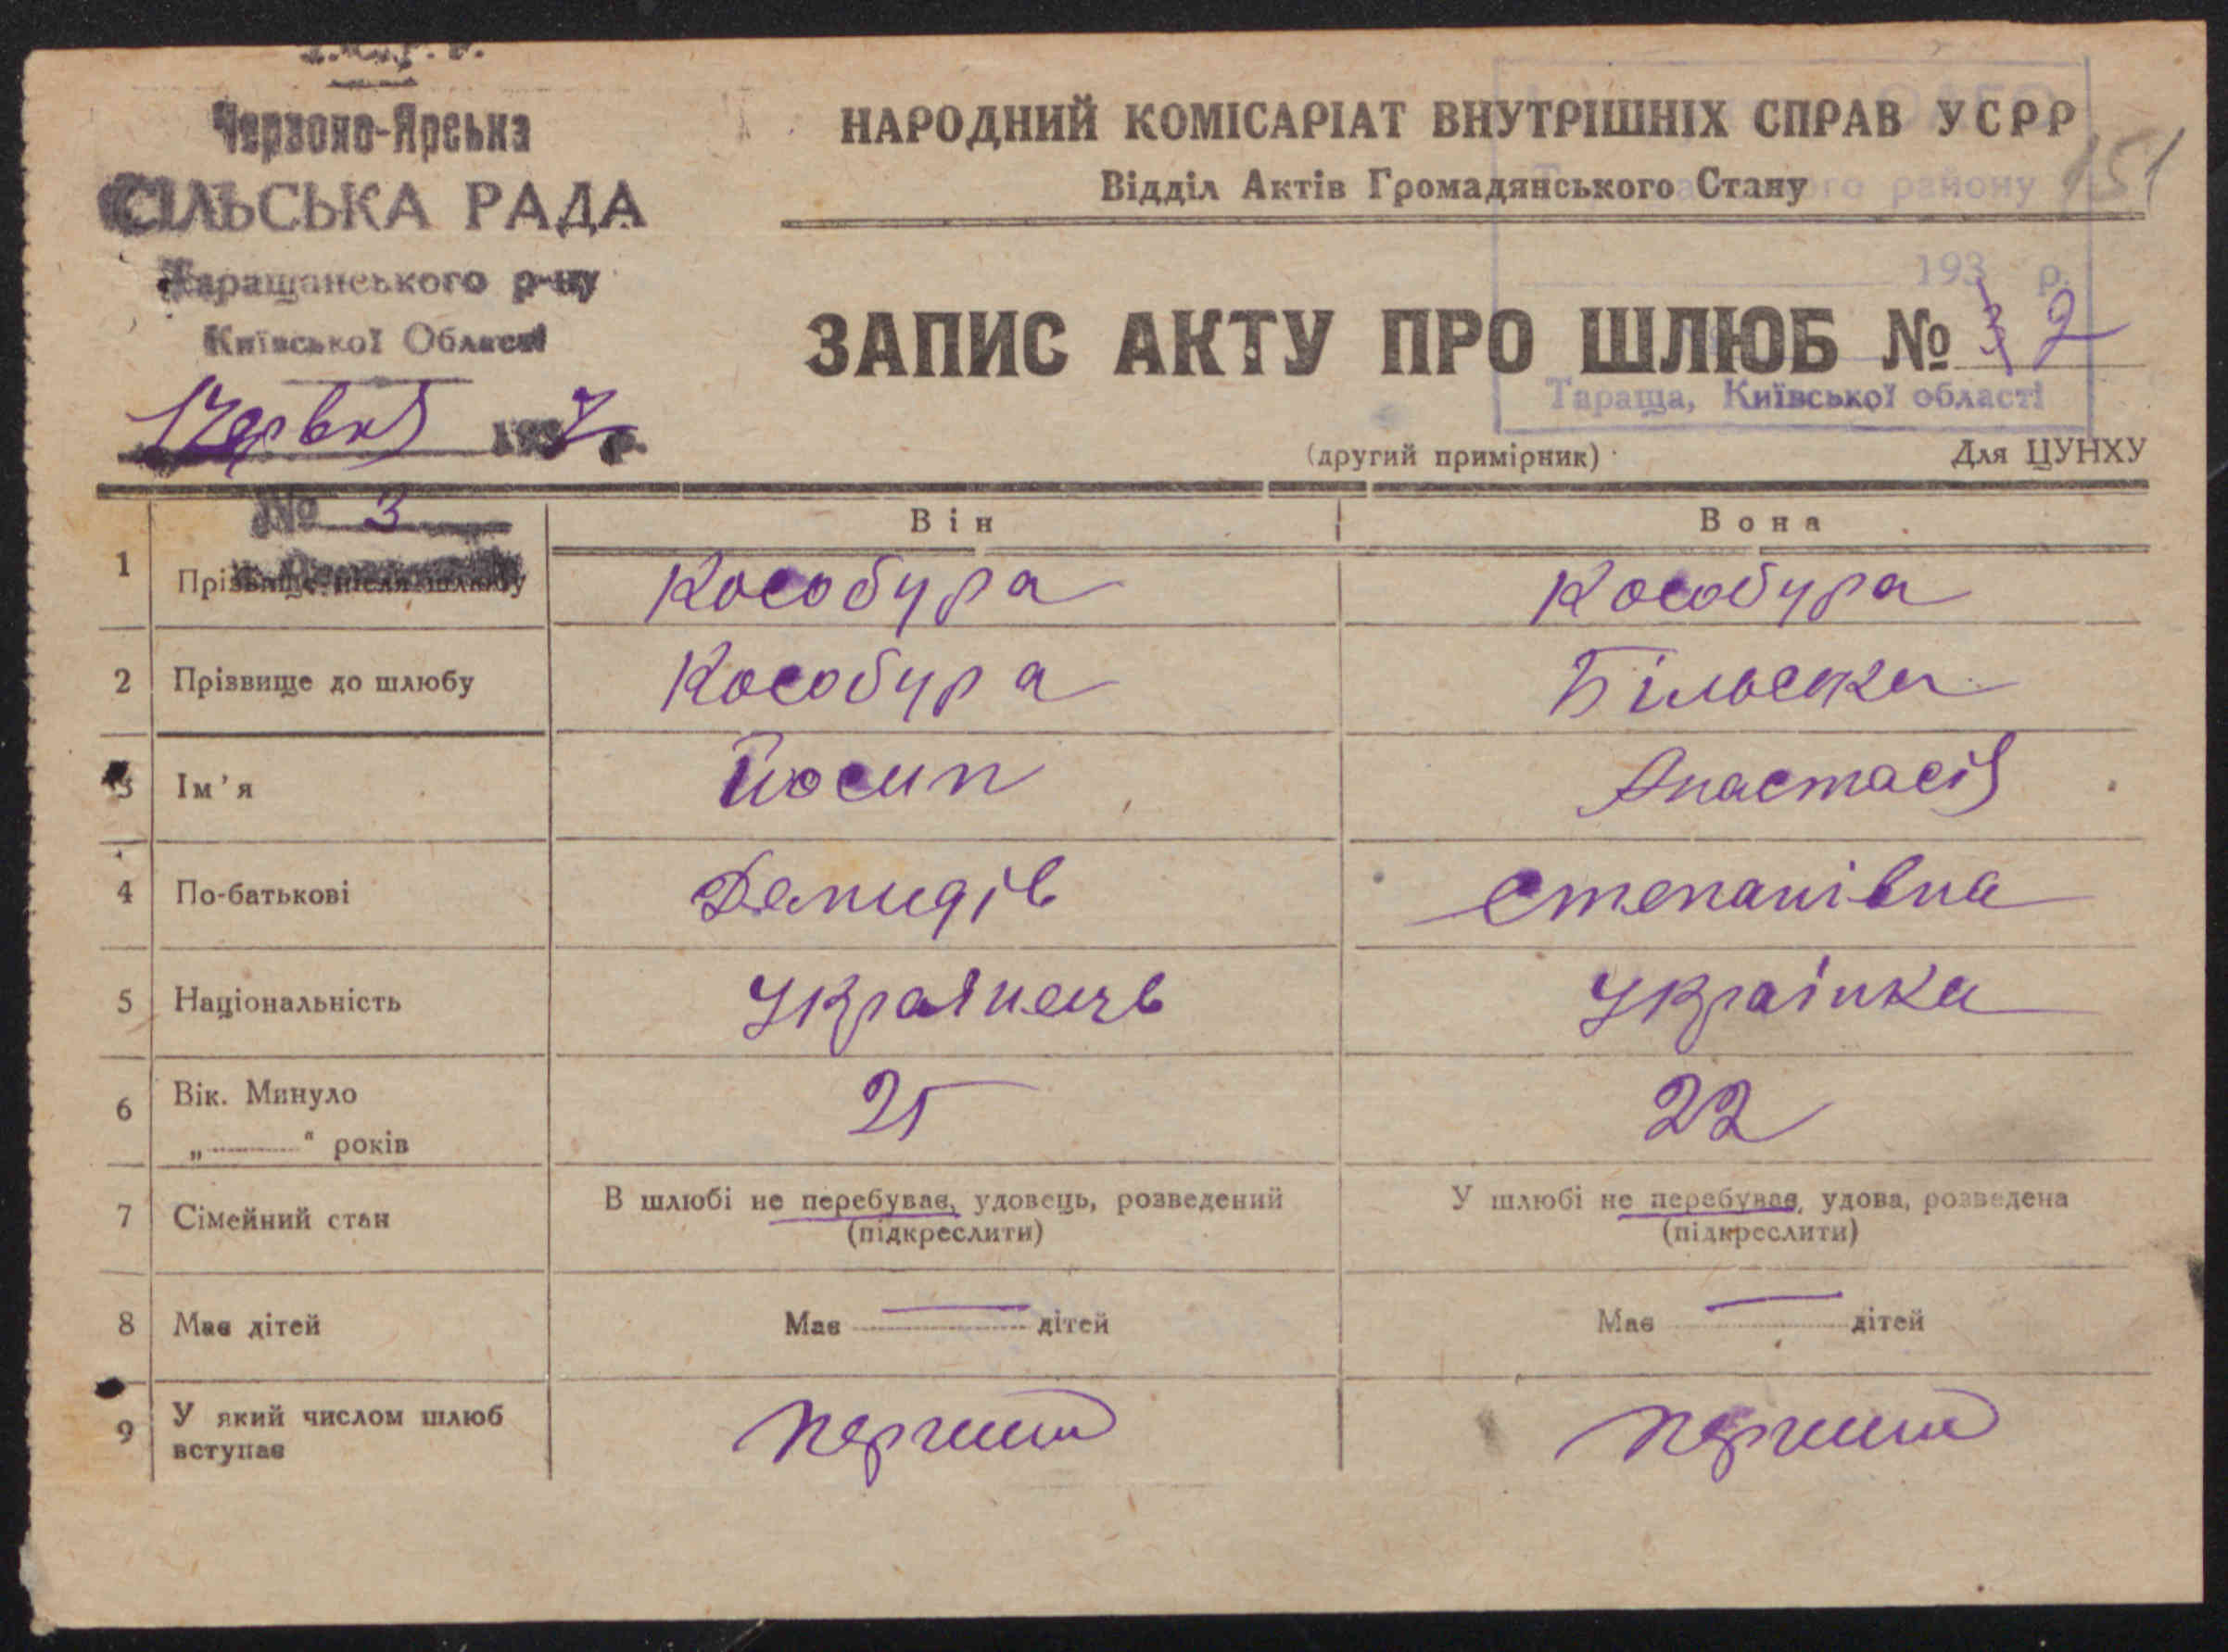 Червоно-Ярська
СІЛЬСЬКА РАДА
Таращанського р-ну
Київської Області
Червня 1937 р.
№ 3
НАРОДНИЙ КОМІСАРІАТ ВНУТРІШНІХ СПРАВ УСРР
Відділ Актів Громадянського Стану
району
151
193 р.
ЗАПИС АКТУ ПРО ШЛЮБ № 3 2
Тараща, Київської області
(другий примірник)
Для ЦУНХУ
Він Вона
1 Прізвище після шлюбу Кособура Кособура
2 Прізвище до шлюбу Кособура Більська
3 Ім'я Йосип Анастасія
4 По-батькові Демидів Степанівна
5 Національність Українець Українка
6 Вік. Минуло
„ “ років 25 22
7 Сімейний стан В шлюбі не перебував, удовець, розведений У шлюбі не перебував, удова, розведена
(підкреслити) (підкреслити)
8 Має дітей Має — дітей Має — дітей
9 У який числом шлюб
вступає перший перший